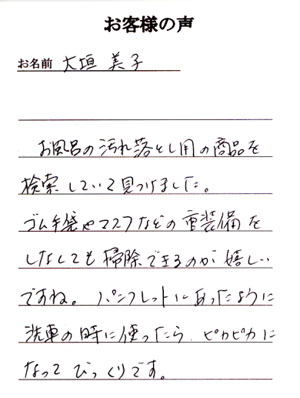 お客様の声
お名前 大垣 美子
お風呂の汚れ落とし用の商品を
検索していて見つけました。
ゴム手袋やマスクなどの重装備を
しなくても掃除できるのが嬉しい
ですね。パンフレットにあったように
洗車の時に使ったら、ピカピカに
なってびっくりです。